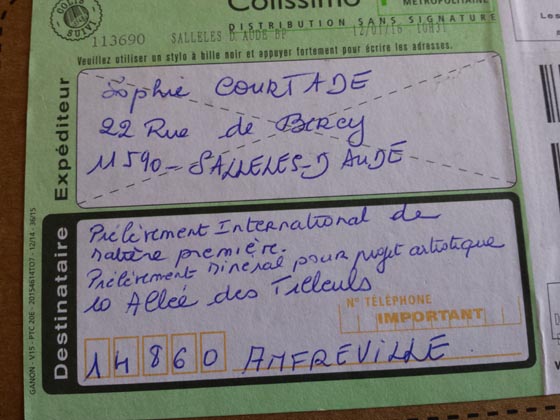 Colissimo
MÉTROPOLITAINE
DISTRIBUTION SANS SIGNATURE
COLIS
SUIVI
113690 SALLELES D AUDE BP 12/01/16 10H31
Veuillez utiliser un stylo à bille noir et appuyer fortement pour écrire les adresses.
Expéditeur
Sophie COURTADE
22 Rue de BERCY
11590 - SALLELES-D AUDE
Destinataire
Prélèvement International de
matière première.
Prélèvement minéral pour projet artistique
10 Allée des Tilleuls
N° TÉLÉPHONE
IMPORTANT
14860 AMFREVILLE
GANON - V15 - PTC 20E - 20154614TD7 - 12/14 - 36/15